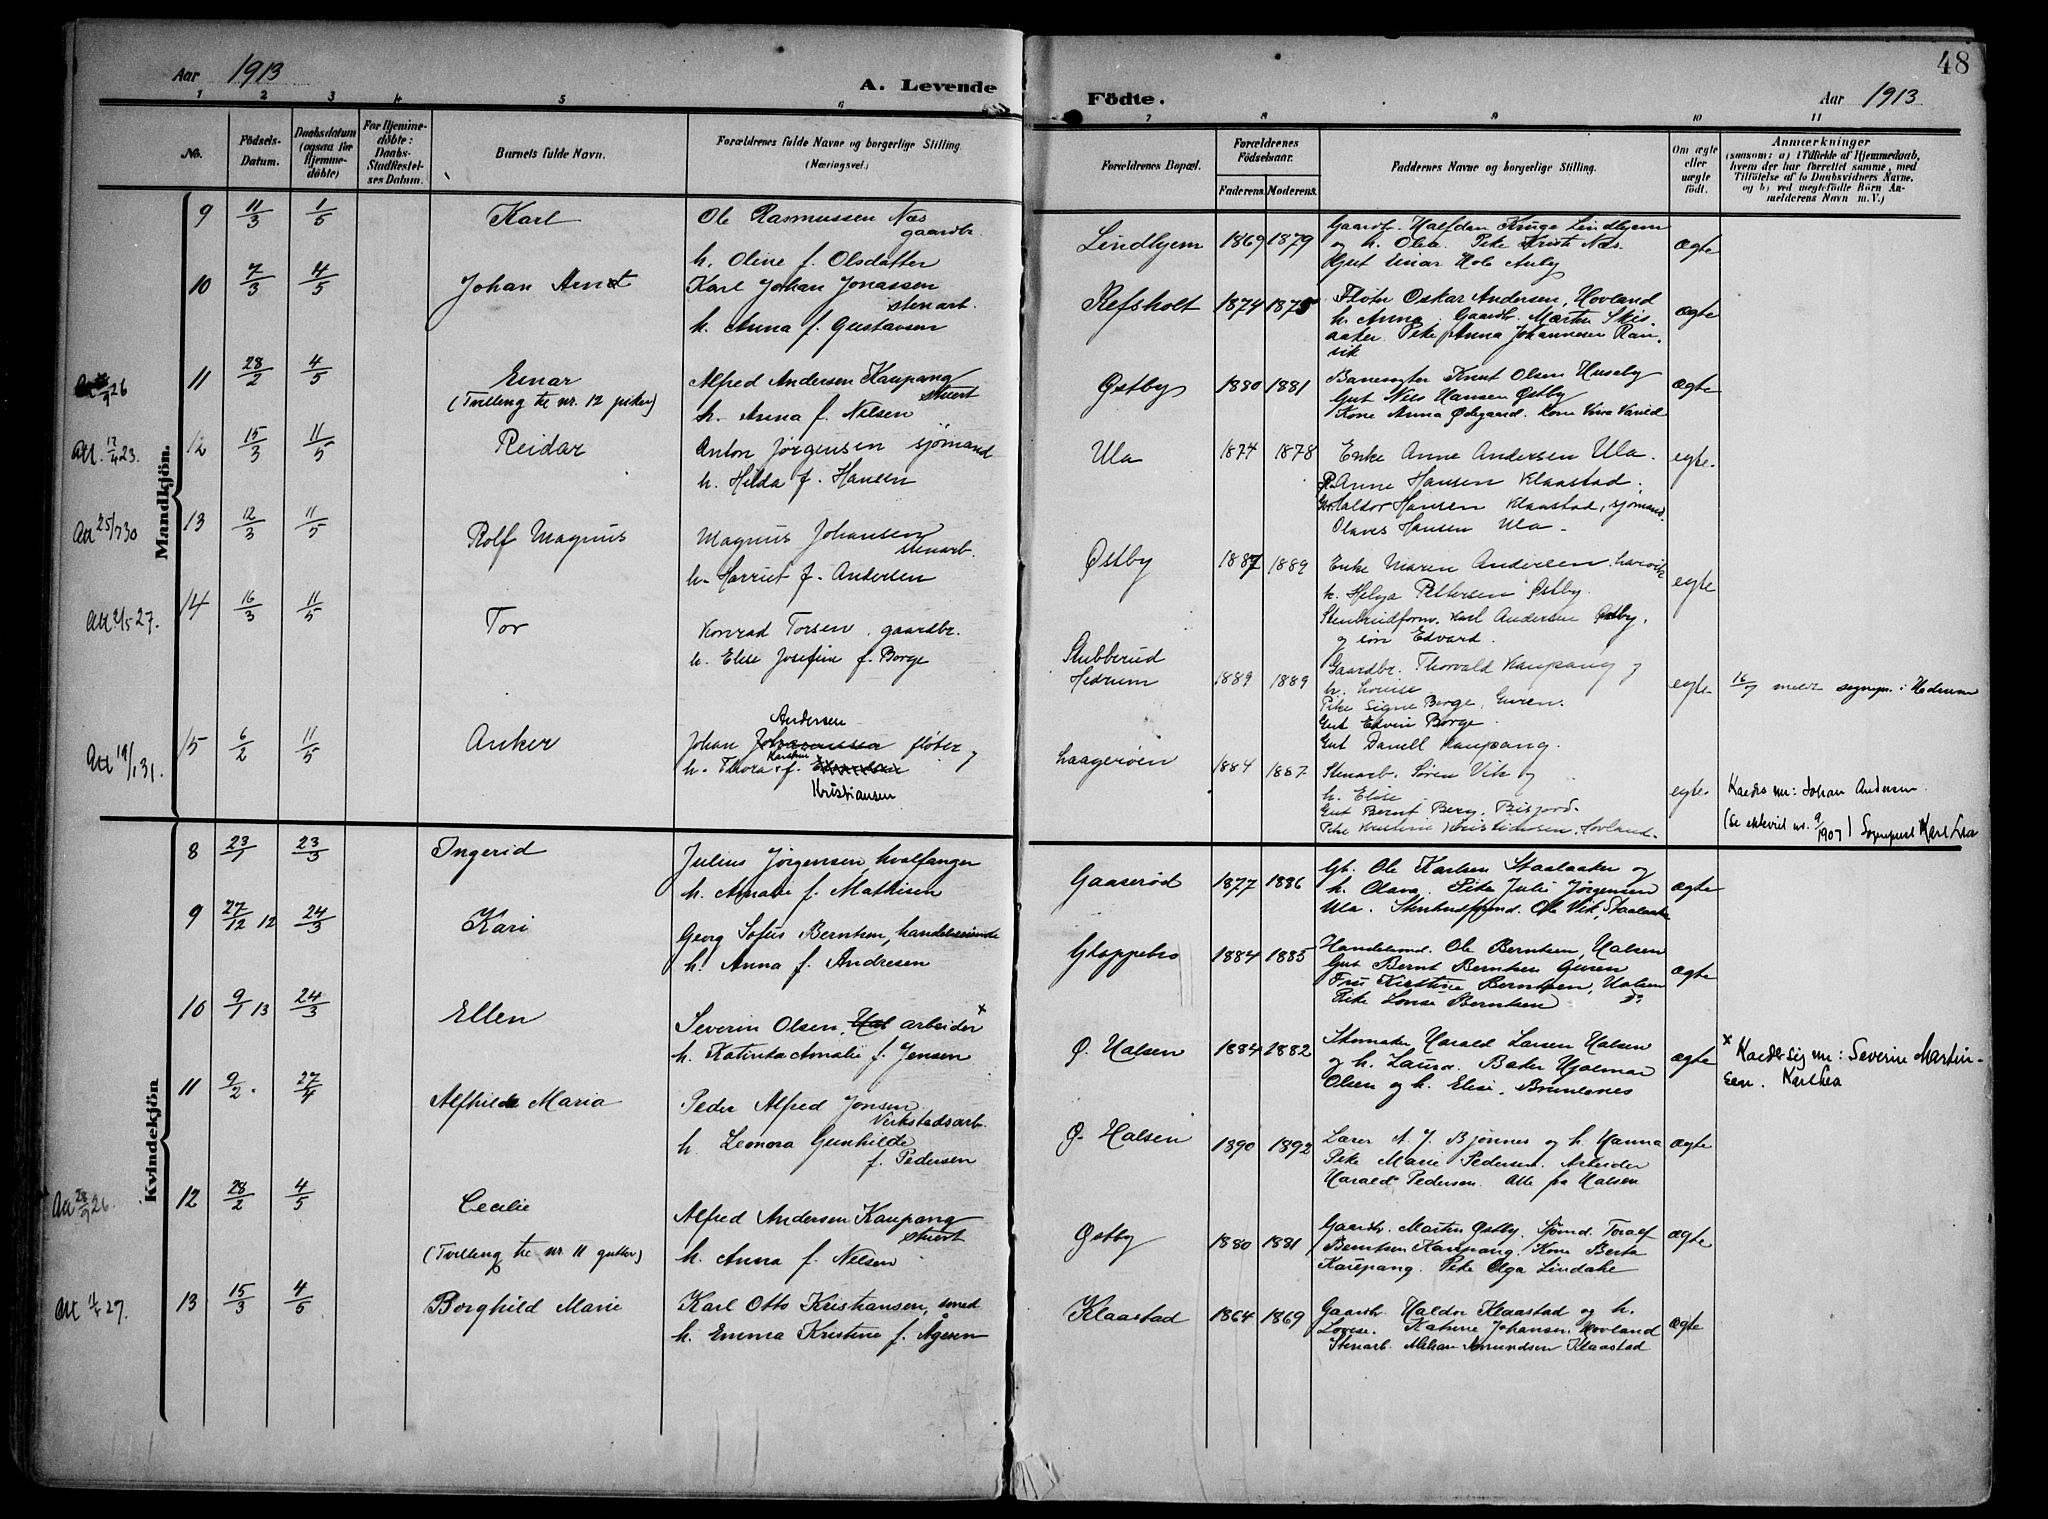 48
Aar 1913
A. Levende Födte.
Aar 1913
1 2 3 4 5 6 7 8 9 10 11
No.
Födsels-Datum.
Daabsdatum (ogsaa for Hjemme-döbte)
For Hjemme-döbte: Daabs-Stadfæstel-ses Datum.
Barnets fulde Navn.
Forældrenes fulde Navne og borgerlige Stilling. (Næringsvei.)
Forældrenes Bopæl.
Forældrenes Födselsaar.
Faderens. Moderens.
Faddernes Navne og borgerlige Stilling.
Om ægte eller uægte födt.
Anmærkninger
(saasom: a) i Tilfælde af Hjemmedaab, hvem der har forrettet samme, med Tilföielse af to Daabsvidners Navne, og b) ved uægtefödte Börn Anmelderens Navn m.V.)
Mandkjön.
9 11/3 1/5 Karl
Ole Rasmussen Næs gaardbr.
h. Oline f. Olsdatter
Lindhjem 1869 1879
Gaardbr. Halfdan Kruge Lindhjem
og h. Olea. Pike Kristi Næs.
Gut Einar Hole Auby
ægte
10 7/3 4/5 Johan Arnt
Karl Johan Jonassen
stenarb.
h. Anna f. Gustavsen
Refsholt 1874 1875
Fløter Oskar Andersen, Hovland
h. Anna. Gaardbr. Martin Skisaaker. Pike Anna Johannesen Ranvik
ægte
11 28/2 4/5 Einar
(Tvilling til nr. 12 piker)
Alfred Andersen Kaupang
stuert
h. Anna f. Nilsen
Østby 1880 1881
Banevogter Knut Olsen Huseby
Gut Nils Hansen Østby
Kone Anna Ødegaard. Kone Vera Varild
ægte
Att. 17/4 23.
12 15/3 11/5 Reidar
Anton Jørgensen sjømand
h. Hilda f. Hansen
Ula 1874 1878
Enke Anne Andersen Ula.
P. Anne Hansen Klaastad.
Gbr. Haldor Hansen Klaastad, sjømand
Olaves Hansen Ula.
egte.
Att 25/7 30
13 12/3 11/5 Rolf Magnus
Magnus Johansen
stenarb.
h. Harriet f. Andersen
Østby 1887 1889
Enke Maren Andersen, Larvik
h. Helga Pettersen Østby.
Stenhudform. Karl Andersen Østby,
og søn Edvard.
egte
Att 2/5 27.
14 16/3 11/5 Tor
Konrad Torsen, gaardbr.
h. Elise Josefine f. Borge
Stubberud
Hedrum 1889 1889
Gaardbr. Thorvald Kaupang og
h. Louise
Pike Signe Borge, Guren.
Gut Edvin Borge.
Gut Daniell Kaupang.
egte
meldt sognepr. i Hedrum
Att 19/1 31.
15 6/2 11/5 Anker
Andersen
Johan Johannessen fløter og
Karstine
h. Thora f.
Kristiansen
Laagerøen 1884 1887
Stenarb. Søren Vik og
h. Elise
Gut Bernt Berg, Bisjord.
Pike Kristine Kristiansen, Hovland.
egte.
Kaldes nu: Johan Andersen
(Se ekkeviel nr. 9/1907) Sogneprest Karl Lea
Kvindekjön
8 23/1 23/3 Ingerid
Julius Jørgensen, hvalfanger
h. Amalie f. Mathisen
Gaaserød 1877 1886
Gb. Ole Karlsen Staalaaker og
h. Olava. Pike Julie Jørgensen
Ula. Stenhudformd. Ole Vik, Staalaaker
ægte
9 27/12 12 24/3 Kari
Georg Sofus Berntsen, handelsreisende
h. Anna f. Andresen
Gloppebro 1884 1885
Handelsmd. Ole Berntsen, Halsen
Gut Bernt Berntsen Guren
Fru Kirstine Berntsen, Halsen
Pike Lovise Berntsen do
ægte
10 9/1 13 24/3 Ellen
Severin Olsen, Hal arbeider x
h. Katinka Amalie f. Jensen
Ø. Halsen 1884 1882
Skomaker Harald Larsen Halsen
og h. Laura. Bader Hjalmar
Olsen og h. Elise, Brunlanes
ægte
x Kalder sig nu: Severin Martinsen. Karl Lea
11 9/2. 27/4 Alfhilde Maria
Peder Alfred Jonsen
Verkstadsarb.
h. Leonora Gunhilde
f. Pedersen
Ø. Halsen 1890 1892
Lærer A. J. Bjønnes og h. Hanna
Pike Marie Pedersen. Arbeider
Harald Pedersen. Alle fra Halsen
ægte
Att 28/9 26.
12 28/2 4/5 Cecilie
(Tvilling til nr. 11 gutter)
Alfred Andersen Kaupang
stuert
h. Anna f. Nilsen
Østby 1880 1881
Gaardbr. Martin Østby. Sjømd. Toralf
Berntsen Kaupang. Kone Berta
Kaupang. Pike Olga Lindake
ægte
13 15/3 4/5 Borghild Marie
Karl Otto Kristiansen, smed
h. Emma Kristine f. Ågesen
Klaastad 1864 1869
Gaardbr. Haldor Klaastad og h.
Lovise. Katrine Johansen, Hovland
Stenarb. Amundsen Klaastad
ægte